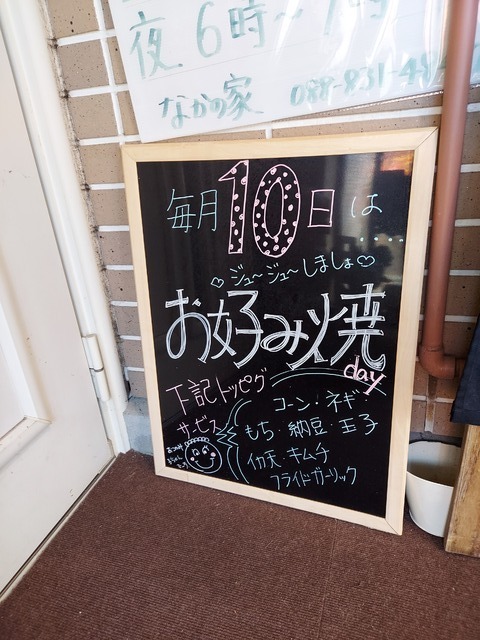 夜6時〜
なかの家 088-831-48
毎月10日は
.....
♡ジュ〜ジュ〜しましょ♡
お好み焼
day
下記トッピング
サービス
コーン・ネギ
もち・納豆・玉子
イカ天・キムチ
フライドガーリック